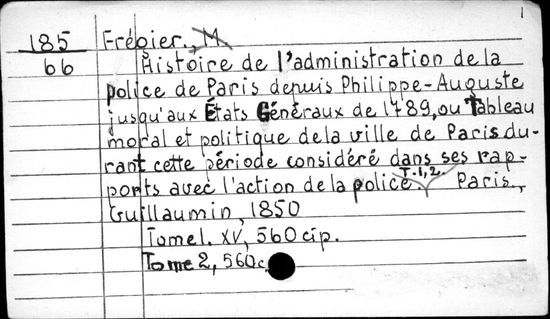 1
185 Frégier., M.
66 Histoire de l'administration de la
police de Paris depuis Philippe-Auguste
jusqu'aux États Généraux de 1789, ou Tableau
moral et politique de la ville de Paris du-
rant cette période considéré dans ses rap-
ports avec l'action de la police T.1,2. Paris.,
Guillaumin, 1850
Tome I. XV, 560 стр.
Tome 2, 560 с.